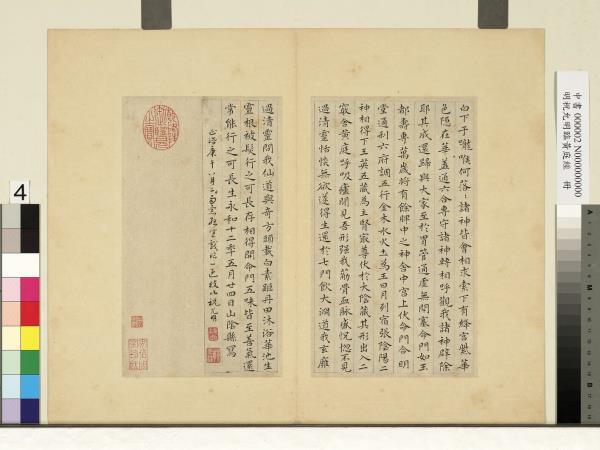 白下于嚨喉何落〻諸神皆會相求索下有絳宮紫華
色隱在華蓋通六合專守諸神轉相呼觀我諸神辟除
耶其成還歸與大家至於胃管通虛無閉塞命門如玉
都壽專萬歲將有餘脾中之神舍中宮上伏命門合明
堂通利六府調五行金木水火土為王日月列宿張陰陽二
神相得下玉英五藏為主腎最尊伏於大陰藏其形出入二
竅舍黃庭呼吸廬間見吾形強我筋骨血脈盛恍惚不見
過清靈恬惔無欲遂得生還於七門飲大淵道我玄癰
過清靈問我仙道與奇方頭載白素距丹田沐浴華池生
靈根被髮行之可長存相得開命門五味皆至善氣還
常能行之可長生永和十二年五月廿四日山陰縣寫
正德庚午八月 枝山祝允明
中書 000002 N000004000
明祝允明臨黃庭經 冊
4